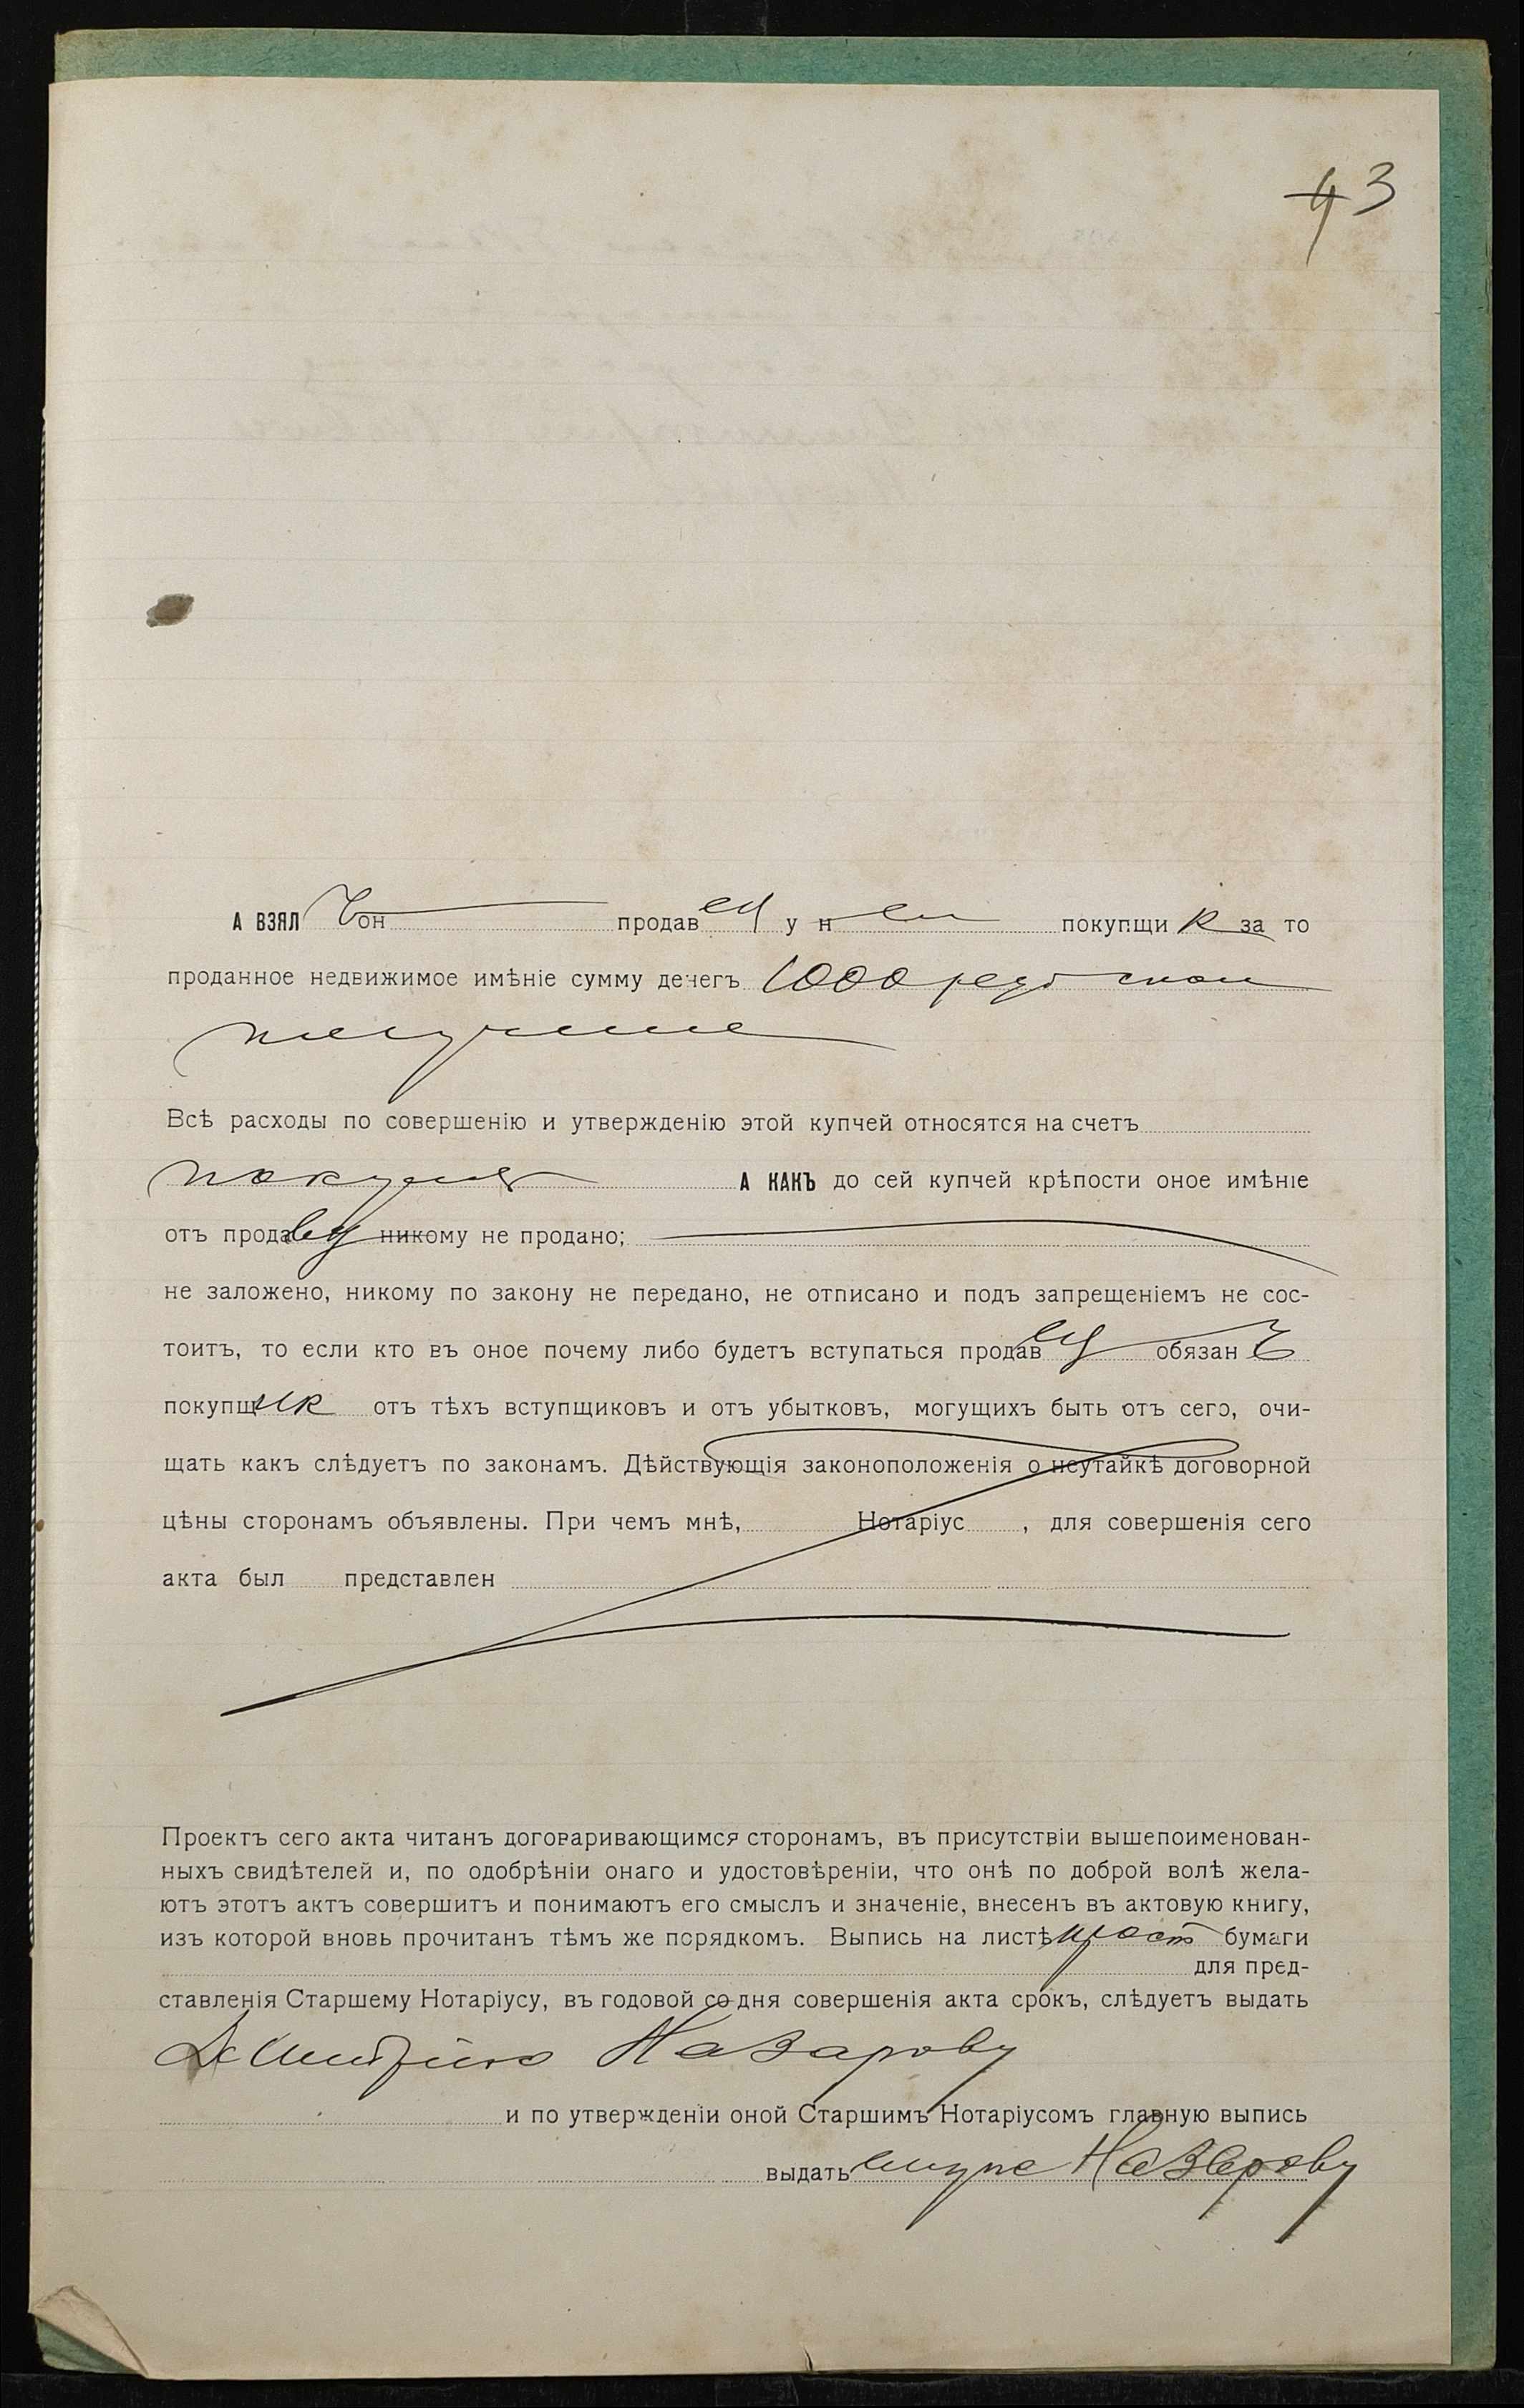 3
А ВЗЯЛЪ он продавец у н покупщик за то
проданное недвижимое имѣніе сумму денегъ 1000
Всѣ расходы по совершенію и утвержденію этой купчей относятся на счетъ
А КАКЪ до сей купчей крѣпости оное имѣніе
отъ продавц никому не продано;
не заложено, никому по закону не передано, не отписано и подъ запрещеніемъ не сос-
тоитъ, то если кто въ оное почему либо будетъ вступаться продавец обязанъ
покупщик отъ тѣхъ вступщиковъ и отъ убытковъ, могущихъ быть отъ сего, очи-
щать какъ слѣдуетъ по законамъ. Дѣйствующія законоположенія о неутайкѣ договорной
цѣны сторонамъ объявлены. При чемъ мнѣ, Нотаріус , для совершенія сего
акта был представлен
Проектъ сего акта читанъ договаривающимся сторонамъ, въ присутствіи вышепоименован-
ныхъ свидѣтелей и, по одобрѣніи онаго и удостовѣреніи, что онѣ по доброй волѣ жела-
ютъ этотъ актъ совершить и понимаютъ его смыслъ и значеніе, внесенъ въ актовую книгу,
изъ которой вновь прочитанъ тѣмъ же порядкомъ. Выпись на листѣ прост бумаги
для пред-
ставленія Старшему Нотаріусу, въ годовой со дня совершенія акта срокъ, слѣдуетъ выдать
Дмитрію Назарову
и по утвержденіи оной Старшимъ Нотаріусомъ главную выпись
выдать ему же Назарову